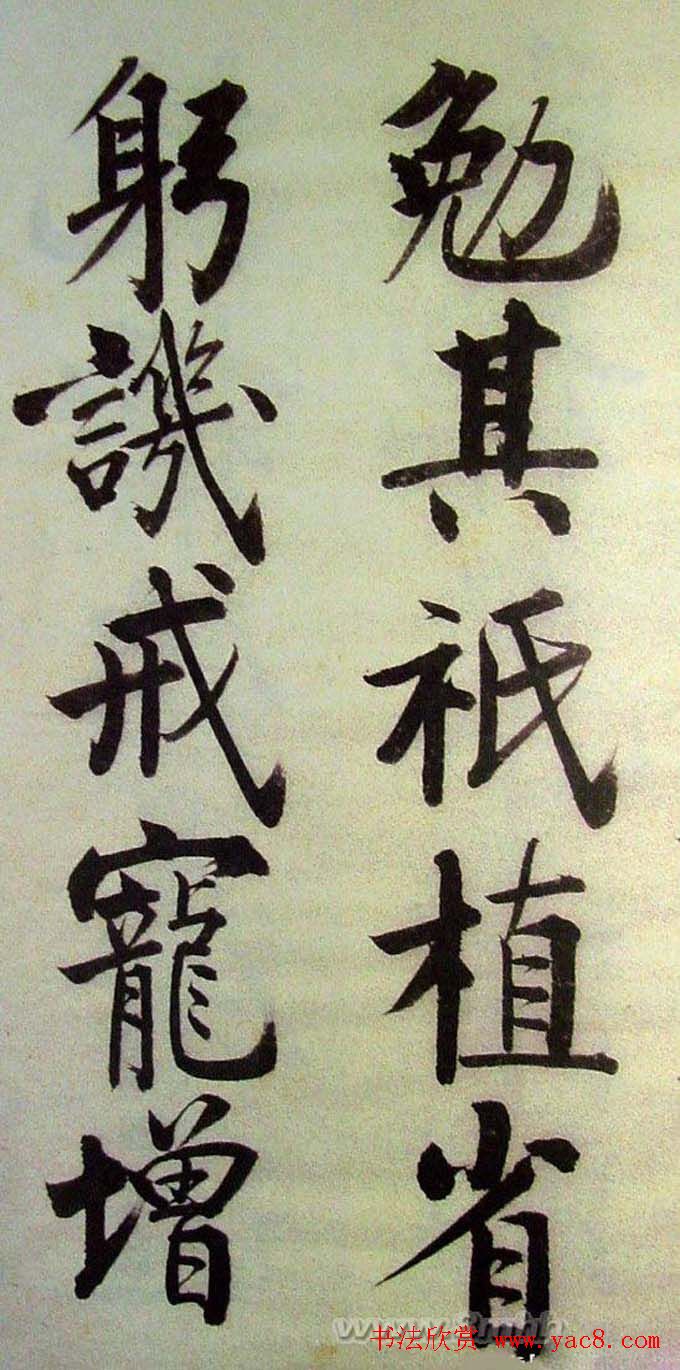 勉其祇植省
躬譏戒寵增
书法欣赏 www.yac8.com